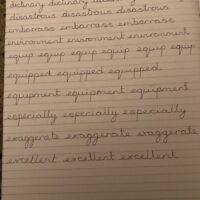 dictionary dictionary
disastrous disastrous disastrous
embarrass embarrass embarrass
environment environment environment
equip equip equip equip equip equip
equipped equipped equipped
equipment equipment equipment
especially especially especially
exaggerate exaggerate exaggerate
excellent excellent excellent